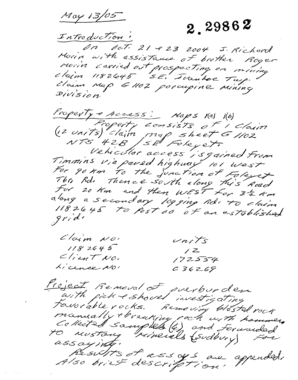 May 13/05
2.29862
Introduction:
On Oct. 21 + 23 2004 I Richard
Morin with assistance of brother Roger
Morin carried out prospecting on mining
claim 1182645 S.E. Ivanhoe Twp.
Claim Map G 1102 porcupine Mining
Division
Property + Access: Maps (A) (B)
Property consists of 1 Claim
(12 units) claim map sheet G 1102
NTS 42B / SE Foleyet.
Vehicular access is gained from
Timmins via paved highway 101 West
For 90 km to the junction of Foleyet
Tbis Rd. Thence south along this Road
For 20 km and then WEST For 3½ km
along a secondary logging Rd. to claim
1182645 to Post 00 of an established
grid.
Claim No: units
1182645 12
Client No: 172554
Licence No: C36269
Project Removal of overburden
with pick + shovel investigating
favorable rocks. Removing blasted rock
manually + breaking rock with hammers
Collected samples (6) and forwarded
to Mustang Minerals (Sudbury) For
assaying.
Results of assays are appended.
Also brief description.